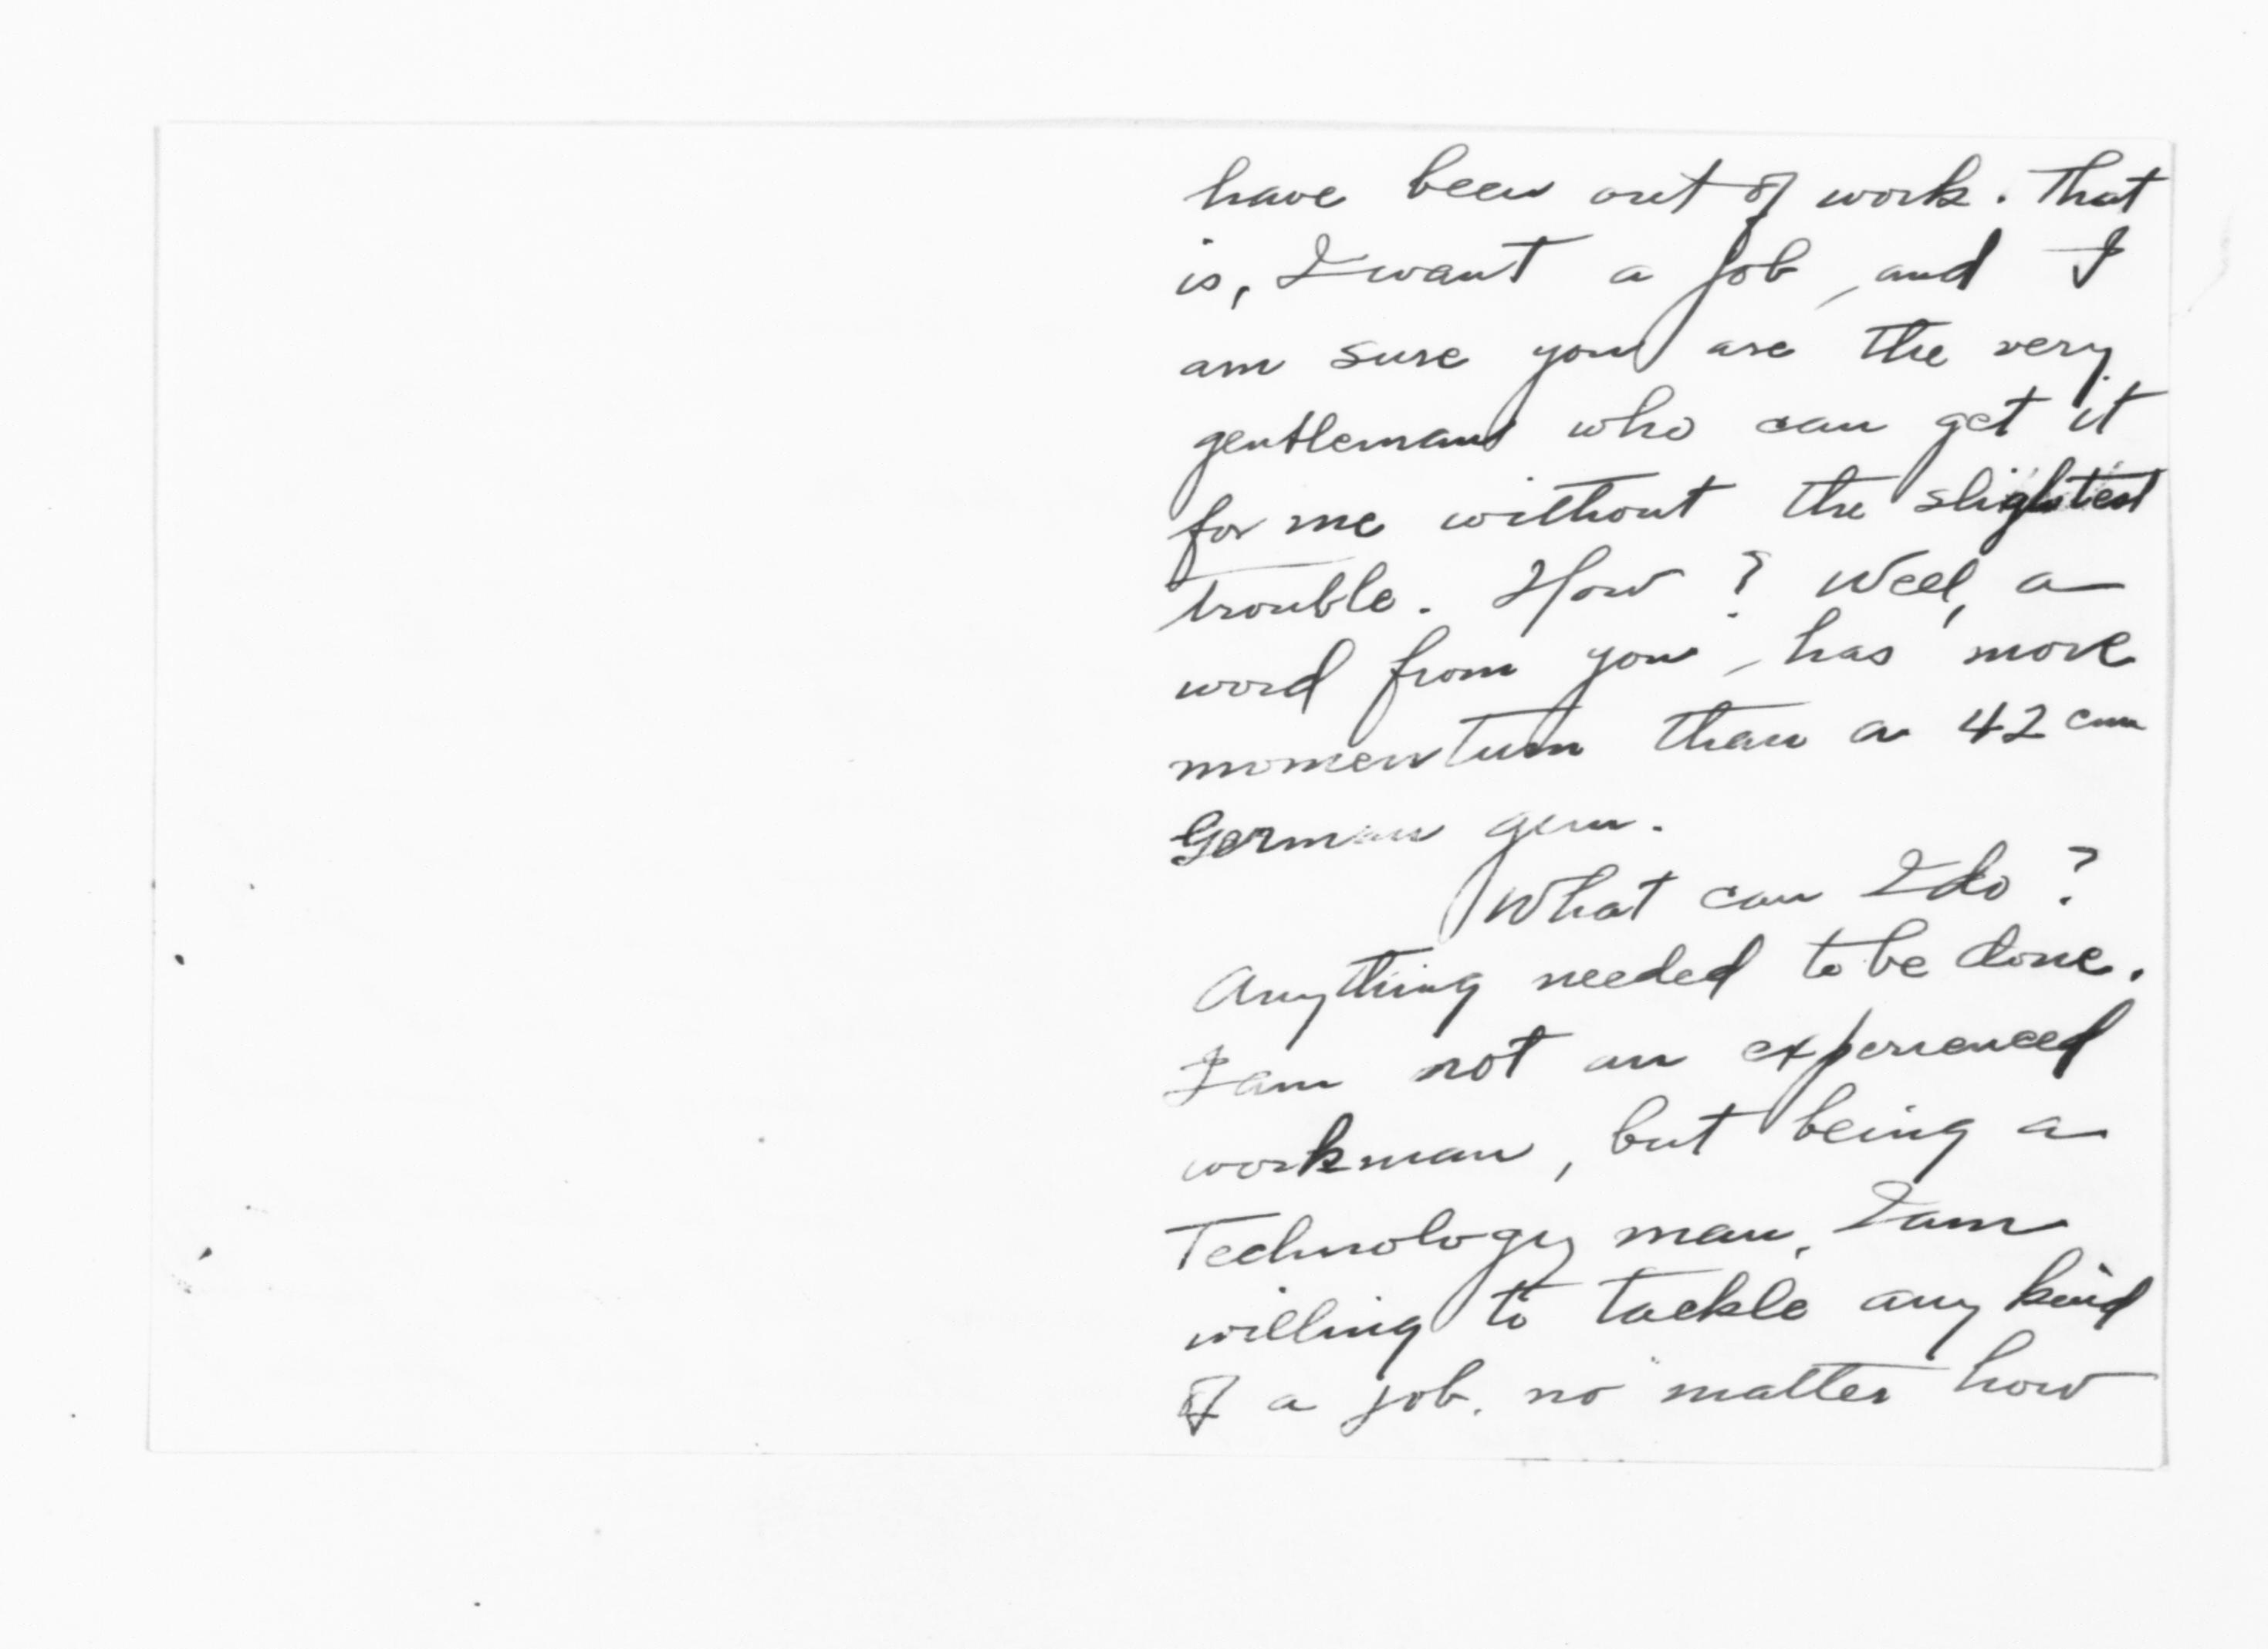 have been out of work. That
is, I want a job, and I
am sure you are the very
gentleman who can get it
for me without the slightest
trouble. How? Well, a
word from you, has more
momentum than a 42 cm
German gun.
What can I do?
Anything needed to be done.
I am not an experienced
workman, but being a
Technology man, I am
willing to tackle any kind
of a job, no matter how